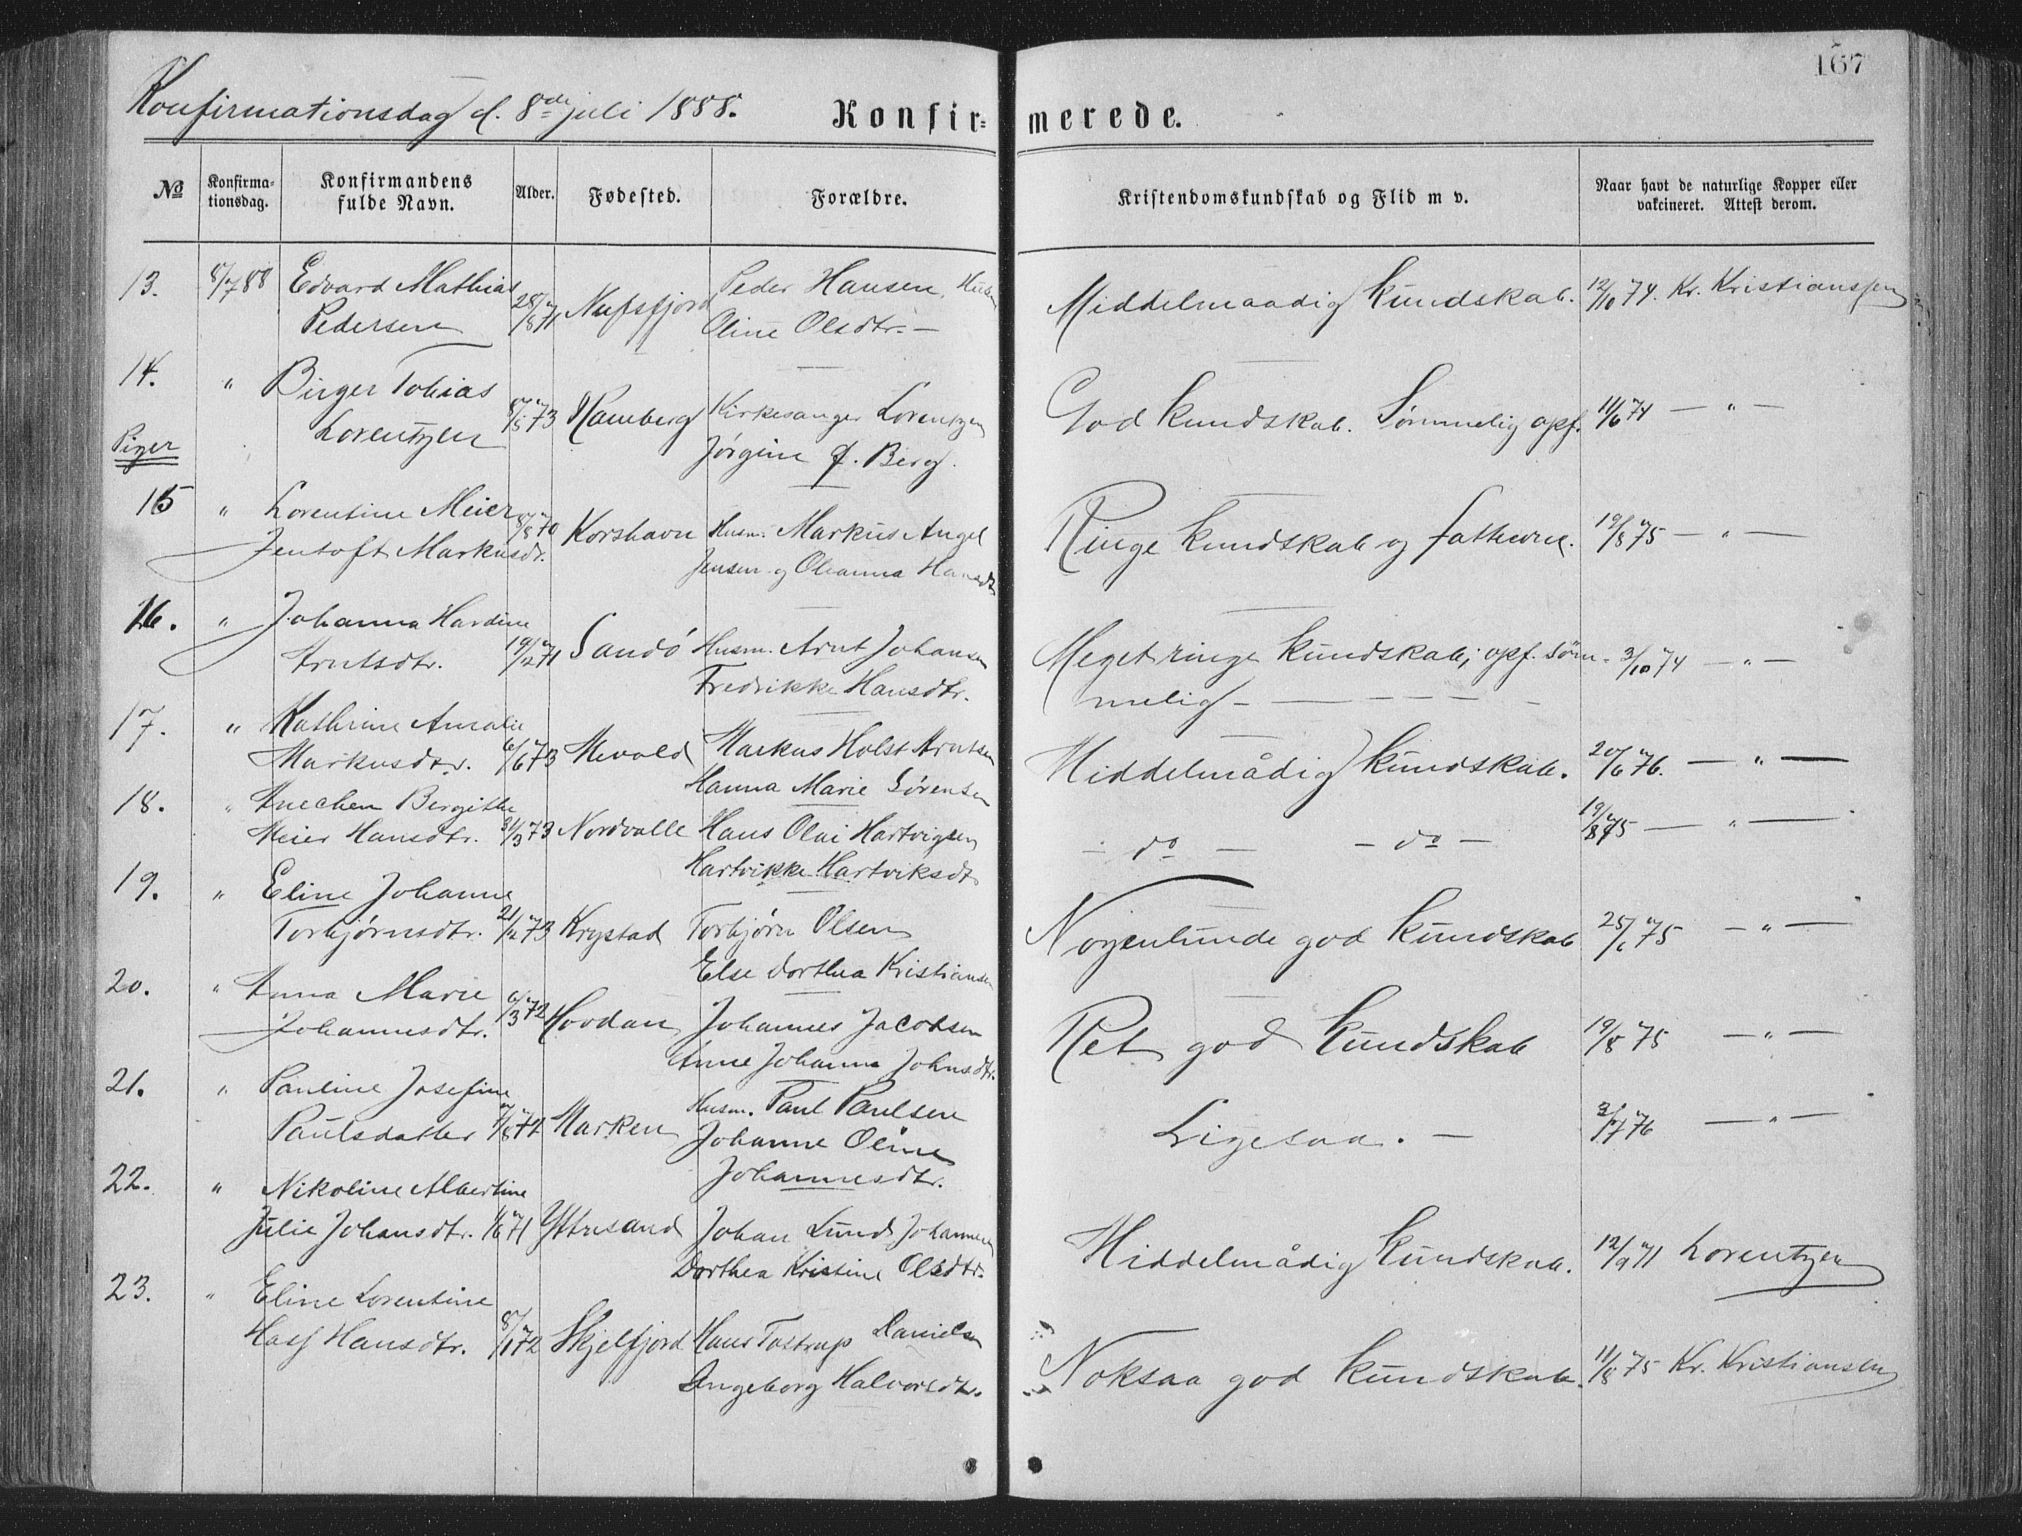 167
Konfirmationsdag d. 8de juli 1888.
Konfir= merede.
No
Konfirma-
tionsdag.
Konfirmandens
fulde Navn.
Alder.
Fødested.
Forældre.
Kristendomskundskab og Flid m v.
Naar havt de naturlige Kopper eller
vakcineret. Attest derom.
13. 8/7 88 Edvard Mathias 28/8 71 Nufsfjord Peder Hansen, Middelmaadig kundskab. 12/10 74. Kr. Kristianssen
Pedersen Oline Olsdtr. —
14. " Birger Tobias 8/5 73 Ramberg Kirkesanger Lorentzen God kundskab. Sømmelig opf. 11/6 74 — " —
Lorentzen Jørgine f. Berg.
Piger
15 " Lorentine Meier 8/8 70 Korshavn Husm. Markus Angel Ringe kundskab og 19/8 75 — " —
Jentoft Markusdt. Jensen og Oleanna Hansdt
16. " Johanna Hardine 19/2 71 Sandö Husm. Arnt Johansen Meget ringe kundskab; opf. søm- 3/10 74 — " —
Arntsdtr. Fredrikke Hansdtr. melig — — — —
17. " Kathrine Amalie 6/6 73 Mevold Markus Holst Arntsen Middelmådig kundskab. 20/6 76. — " —
Markusdtr. Hanna Marie Sörensen
18. " Anechen Bergitte 31/3 73 Nordvalle Hans Olai Hartvigsen — do — — do — 19/8 75 — " —
Meier Hansdtr. Hartvikke Hartviksdt
19. " Eline Johanne 21/2 73 Krystad Torbjörn Olsen Nogenlunde god kundskab 25/6 75 — " —
Torbjørnsdtr. Else Dorthea Kristiansen
20. " Anna Marie 6/3 72 Hovdan Johannes Jacobsen Ret god kundskab 19/8 75 — " —
Johannesdtr. Anne Johanna Johnsdtr.
21. " Pauline Josefine Marken Husm. Paul Paulsen Ligesaa. — 3/7 76 — " —
Paulsdatter Johanne Oline
Johannesdtr.
22. " Nikoline Albertine
Julie Johansdtr. 1/6 71 Yttresand Johan Lund Johannesen Middelmådig kundskab. 12/9 71 Lorentzen
Dorthea Kristine Olsdtr.
23. " Eline Lorentine
Hansdtr. 8/1 72 Skjelfjord Hans Tostrup Danielsen Noksaa god kundskab. 11/8 75 Kr. Kristiansen
Ingeborg Halvorsdtr.